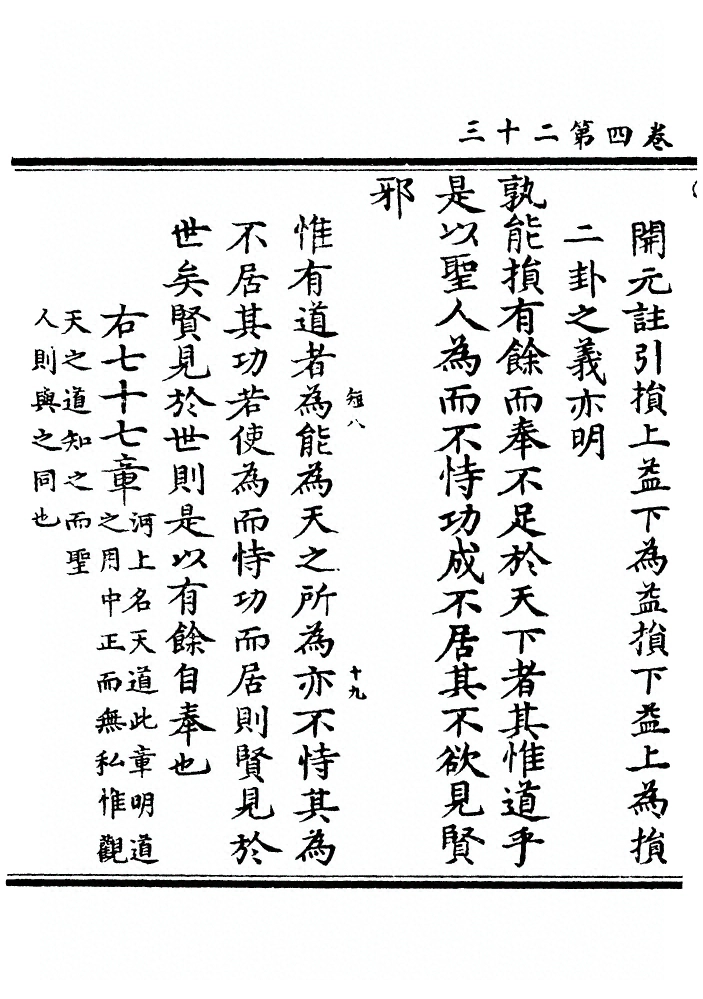 卷四第二十三
開元註引損上益下為益損下益上為損
二卦之義亦明
孰能損有餘而奉不足於天下者其惟道乎
是以聖人為而不恃功成不居其不欲見賢
邪
短八
十九
惟有道者為能為天之所為亦不恃其為
不居其功若使為而恃功而居則賢見於
世矣賢見於世則是以有餘自奉也
右七十七章
河上名天道此章明道
之用中正而無私惟觀
天之道知之而聖
人則與之同也